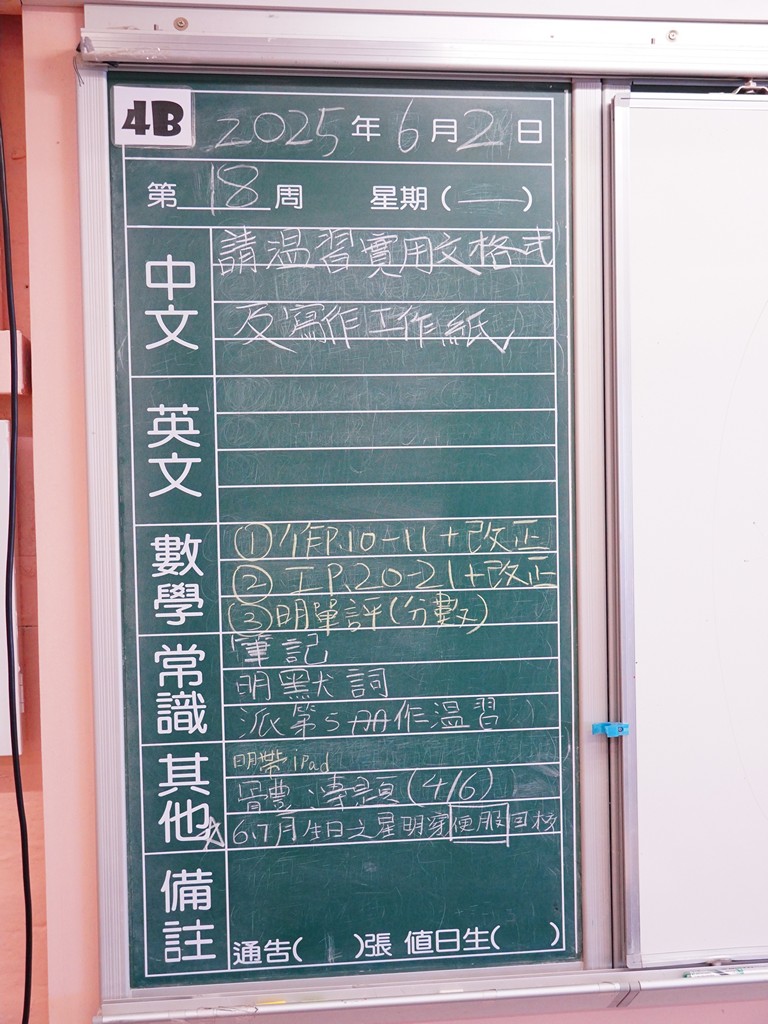 4B 2025年6月2日
第18周 星期(一)
中文
請温習實用文格式
及寫作工作紙
英文
數學
①作P.10-11+改正
②工P.20-21+改正
③明單評(分數)
常識
筆記
明默詞
派第5冊作温習
其他
明帶iPad
體農:專題(4/6)
☆6、7月生日之星明穿便服回校
備註
通告( )張 值日生( )